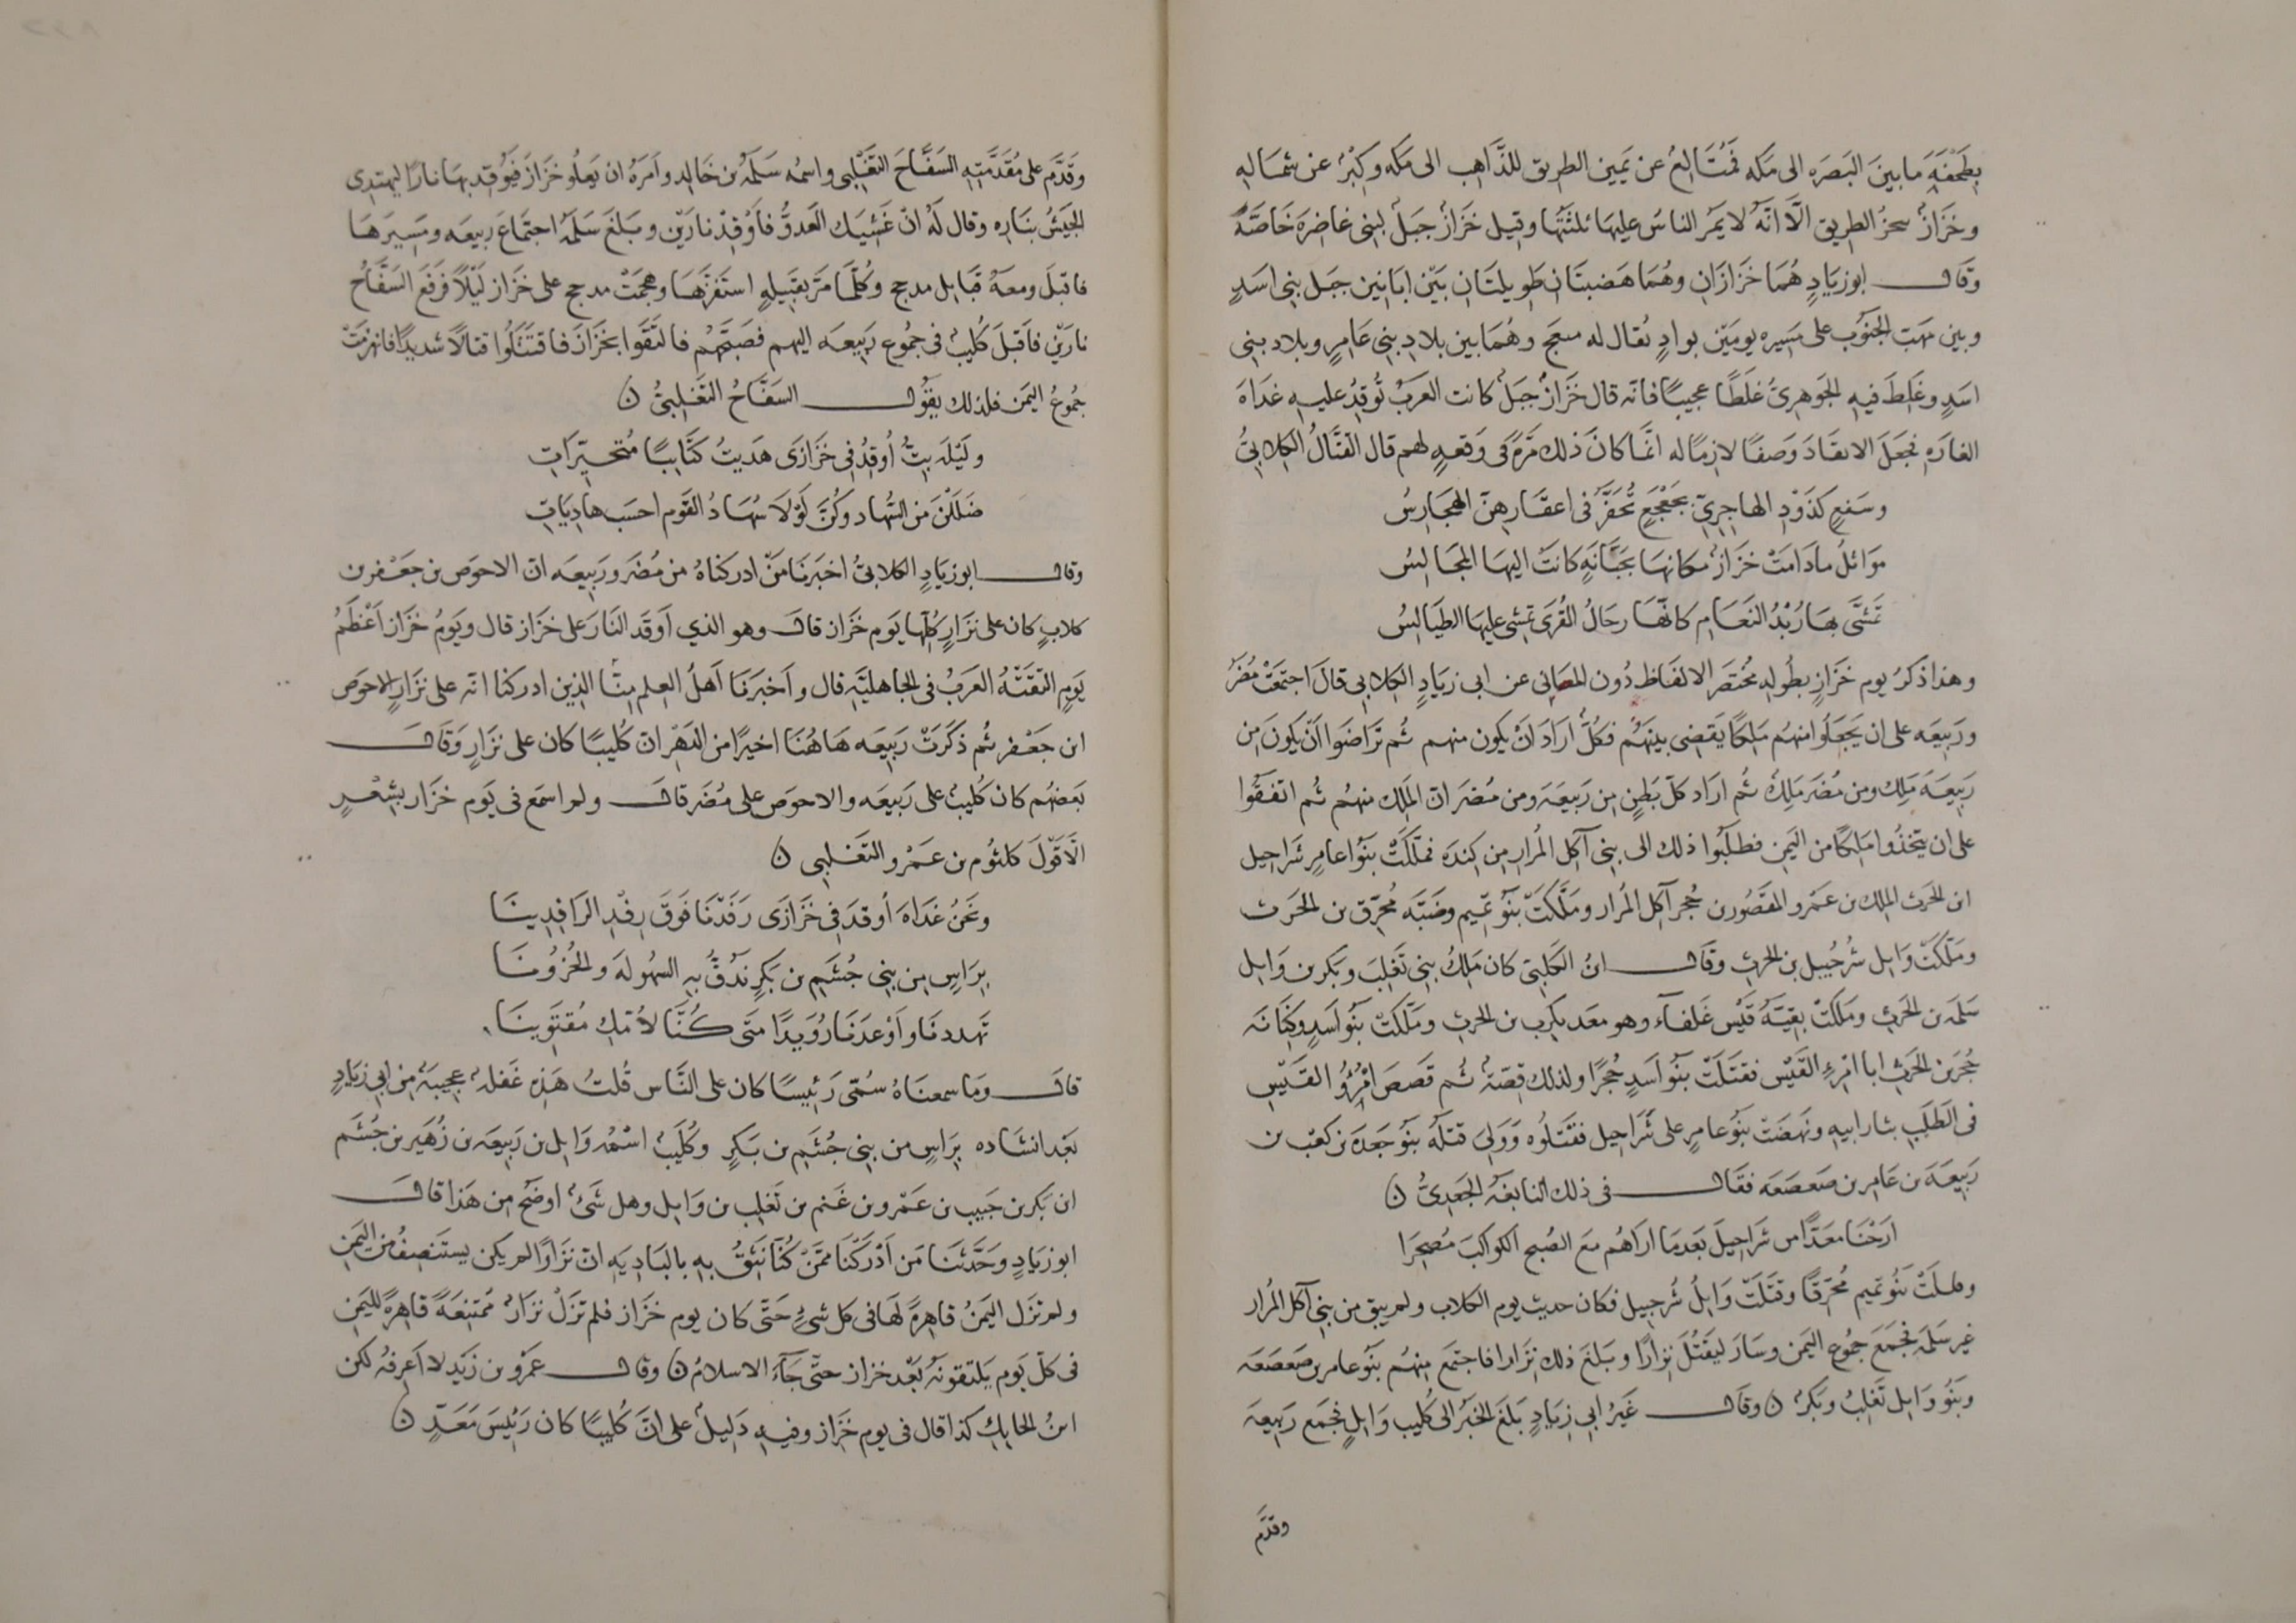 بِطَخْفَةَ ما بينَ البَصرَه الى مَكه فمُتَالِعٌ عن يَمين الطريق للذَّاهب الى مكه وكِبْرٌ عن شماله
وخَزَازٌ بنحر الطريق الّا انّه لا يَمر الناسُ عليها ثلثتُها وقيل خَزَازٌ جَبَلٌ لبنى غاضرة خَاصّةً
وقال ابو زيَادٍ هُما خَزَازَانِ وهُما هَضبتَان طَويلتَان بَيْن ابَانين جَبل بنى اسَدٍ
وبين مهَبّ الجنُوب على مَسِيره يومَيْن بوادٍ يُقال له منعج وهُما بين بلادِ بنى عَامِرٍ وبلاد بنى
اسَدٍ وغَلِطَ فيهِ الجوَهرِىُّ غلَطًا عجيبًا فانّه قال خَزازٌ جَبَلٌ كانت العرَبُ تُوقِدُ عليهِ غدَاةَ
الغارَةِ فجعَلَ الايقَادَ وَصفًا لازِمًا له انّما كانَ ذلك مَرّةً فى وَقعةٍ لهم قال القتَّالُ الكِلابِىُّ
وسَفعٍ كذَوْدِ الهاجِرِىّ بجَعْجَعٍ تُحَفِّرُ فى اعقَارِهنّ الهجَارِسُ
موَاثِلُ ما دَامَتْ خزَازٌ مكانهَا بجَبَّانَةٍ كانَتْ اليها المجَالِسُ
تَمَشَّى بها رُبْدُ النعَام كانّها رجَالُ القُرَى تمشى عليها الطيَالِسُ
وهذا ذكرُ يوم خَزَازٍ بطُولِهِ مُختصَر الالفَاظ دُون المعَانى عن ابى زيَادٍ الكِلابى قالَ اجتمَعَتْ مُضَرُ
ورَبيعَه على ان يَجعَلوُا منهُم مَلِكًا يَقضِى بينَهُم فكُلٌّ ارَادَ انْ يكون منهم ثُم ترَاضَوا انْ يكونَ من
رَبيعَةَ مَلِكٌ ومن مُضَر مَلِكٌ ثُم ارَاد كلّ بَطنٍ من رَبيعَةَ ومن مُضَر ان المَلِك منهُم ثُم اتفَقُوا
على ان يتّخذُوا مَلِكًا من اليَمن فطلَبُوا ذلك الى بنى آكِل المُرارِ من كِندَه فملَّكَتْ بنُوا عامِرٍ شَراحِيل
ابن الحَرث المِلك بن عَمْرو المقصُور بن حُجر آكِل المُرار ومَلَّكَتْ بنُو تمَيم وضَبّه مُحرّق بن الحَرث
ومَلّكَتْ وَايِل شُرحبيل بن الحرث وقال ابنُ الكَلبىّ كان مَلِكُ بنى تَغلِبَ وبكر بن وَايل
سَلَمَة بن الحَرث ومَلكَتْ بقيّةُ قَيْس غَلفآء وهو معدِيكَرِب بن الحرث ومَلّكَتْ بنُو اسَدٍ وكِنانَه
حُجرَ بن الحَرث ابا امْرِئ القَيْس فقتَلَتْ بنُو اسَدٍ حُجرًا ولذلك قِصّةٌ ثُم قَصَص امْرُؤ القَيسِ
فى الطَلَبِ بثار ابيهِ ونهَضَتْ بنُو عامِرٍ على شَراحِيل فقَتلُوه ووَلِىَ قتلَه بنُو جَعدَه بن كعْب بن
رَبيعَة بن عَامِر بن صَعصَعه فقال فى ذلك النابغَةُ الجَعدِىُّ ن
ارَحْنَا مَعَدًّا من شَراحِيلَ بَعدَما ارَاهُم معَ الصُبح الكَواكبَ مُصحِرَا
وقتلَتْ بنُو تمَيم مُحَرّقًا وقتَلَتْ وَايِلُ شُرحبيل فكان حديث يوم الكلاب ولم يبق من بنى آكل المُرار
غير سَلَمَة فجمَعَ جمُوع اليَمن وسَارَ ليَقتُل نزارًا وبَلغَ ذلك نِزَارا فاجتمَع منهُم بنُو عامر بن صَعصَعَه
وبنُو وَايل تَغلِبُ وبَكرٌ ن وقال غَيرُ ابى زيَادٍ بَلغَ الخبَرُ الى كُليب وَايلٍ فجمَع رَبيعَة
وقدّم
وَقدَّم على مُقَدّمَتِهِ السَفّاحَ التَغْلِبى واسمُه سَلَمَةُ بن خَالِد وامَرَهُ ان يعلُو خَزَازَ فيُوقد بهَا نارًا ليَهتدِى
الجيَشُ بنَارِه وقال لَهُ انْ غَشِيَك العَدوُّ فاَوْقِدْ نارَيْن وبَلغَ سَلَمَه اجتمَاعَ رَبيعَه ومَسِيرَهَا
فاقبلَ ومعَهُ قبَايل مذحج وكُلّمَا مَرّ بقَبيلهٍ استَفزّهَا وهجمَتْ مذحج على خَزَاز لَيْلًا فرَفعَ السَفّاحُ
نارَيْن فاَقبَلَ كُليبٌ فى جمُوع رَبيعَه اليهم فصَبّحَهُم فالتَقَوا بخَزَازَ فاقتَتَلُوا قتالًا شَديدًا فانهزمَتْ
جمُوعُ اليَمن فلذلك يقُول السَفّاحُ التَغلِبىُّ ن
وليْلَه بِتُّ اُوقِدُ فى خَزَازَى هَديتُ كتَايبًا مُتَحيّرَاتِ
ضَلَلْنَ من السُّهاد وكُنّ لَوْلَا سُهَادُ القَوم احسَب هادِيَاتِ
وقال ابو زيَادٍ الكلابىُّ اخبرَنا مَنْ ادركنَاهُ من مُضَر ورَبيعَه انّ الاحوَص بن جعْفر بن
كلابٍ كان على نزَارٍ كُلّها يَوم خَزَاز قال وهو الذي اَوقَد النَارَ على خَزَاز قال ويَومُ خَزَاز اَعْظَمُ
يَومٍ التقَتْهُ العَرَبُ فى الجاهليّةِ قال واَخبرَنَا اَهلُ العِلم مِنّا الذين ادركنا انّه على نزَارٍ الاحوَص
ابن جعْفر ثُم ذكَرَتْ رَبيعَه هَاهُنَا اخيرًا من الدَهْر انّ كُليبًا كان على نزَارٍ وقال
بَعضهُم كان كُليبٌ على رَبيعَه والاحوَص على مُضَر قال ولم اسمَع فى يَوم خَزَاز بشِعْرٍ
الّا قَوْلَ كلثُوم بن عَمْرو التَغلِبى ن
ونحَنُ غدَاةَ اُوقدَ فى خَزَازَى رَفَدْنَا فَوقَ رِفْدِ الرَافِدِينَا
بِرَاسٍ من بنى جُشَم بن بَكرٍ نَدُقُّ بهِ السهُولَةَ والحُزُونَا
تَهدَّدنَا واَوْعِدنَا رُوَيدًا متَى كُنَّا لأُمّكِ مُقتَوِينَا
قال ومَا سمعنَاهُ سُمّى رَئِيسًا كان على النَّاس قُلتُ هَذِهِ غَفلَةٌ عجيبَةٌ من ابى زيَادٍ
بَعْد انشَادِه بِرَاسٍ من بنى جُشَم بن بَكرٍ وكُلَيبٌ اسْمُهُ وَايل بن رَبيعَه بن زُهَير بن جُشَم
ابن بَكر بن حَبيب بن عَمْرو بن غَنم بن تَغلِب بن وَايل وهل شَئٌ اوضَح من هَذا قال
ابو زيَادٍ وحَدّثَنا مَن اَدْرَكْنَا ممّنْ كُنّا نَثِقُ بهِ بالبَادِيَهِ انّ نزَارًا لم يكن يستَنصِفُ من اليَمن
ولم تزَل اليَمنُ قاهِرَةً لهَا فى كل شئٍ حَتّى كان يوم خَزَاز فلم تزَلْ نزَارٌ مُمتَنِعَةً قاهِرَةً لليَمن
فى كلّ يَوم يَلتقونَهُ بَعْد خَزَاز حتّى جَآءَ الاسلامُ ن وقال عَمْرُو بن زَيد لا اَعرِفُه لكن
ابنُ الحايِك كذا قال فى يوم خَزَاز وفيهِ دَلِيلٌ على انّ كُليبًا كان رَئِيسَ مَعَدٍّ ن